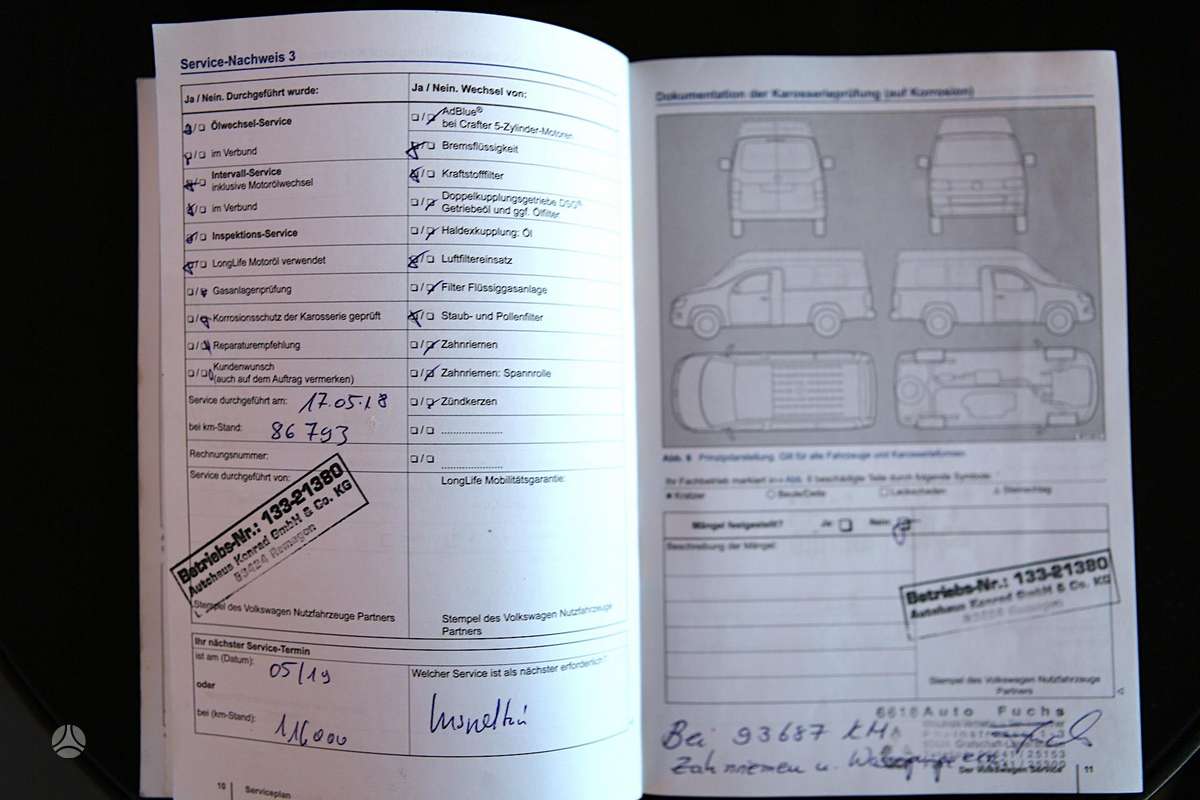 Service-Nachweis 3
Ja / Nein. Durchgeführt wurde:
Ölwechsel-Service
im Verbund
Intervall-Service
inklusive Motorölwechsel
im Verbund
Inspektions-Service
LongLife Motoröl verwendet
Gasanlagenprüfung
Korrosionsschutz der Karosserie geprüft
Reparaturempfehlung
Kundenwunsch
(auch auf dem Auftrag vermerken)
Service durchgeführt am: 17.05.18
bei km-Stand: 86793
Rechnungsnummer:
Service durchgeführt von:
Betriebs-Nr.: 133-21380
Autohaus Konrad GmbH & Co. KG
53424 Remagen
Stempel des Volkswagen Nutzfahrzeuge Partners
Ja / Nein. Wechsel von:
AdBlue®
bei Crafter 5-Zylinder-Motoren
Bremsflüssigkeit
Kraftstofffilter
Doppelkupplungsgetriebe DSG®
Getriebeöl und ggf. Ölfilter
Haldexkupplung: Öl
Luftfiltereinsatz
Filter Flüssiggasanlage
Staub- und Pollenfilter
Zahnriemen
Zahnriemen: Spannrolle
Zündkerzen
LongLife Mobilitätsgarantie:
Stempel des Volkswagen Nutzfahrzeuge
Partners
Ihr nächster Service-Termin
ist am (Datum): 05/19
oder
bei (km-Stand): 116000
Welcher Service ist als nächster erforderlich?
10 Serviceplan
Dokumentation der Karosserieprüfung (auf Korrosion)
Abb. 6 Prinzipdarstellung: Gilt für alle Fahrzeuge und Karosserieformen
Ihr Fachbetrieb markiert in Abb. 6 beschädigte Teile durch folgende Symbole:
Kratzer Beule/Delle Lackschaden Steinschlag
Mängel festgestellt? Ja: Nein:
Beschreibung der Mängel:
Betriebs-Nr.: 133-21380
Autohaus Konrad GmbH & Co. KG
53424 Remagen
Stempel des Volkswagen Nutzfahrzeuge
Partners
6618 Auto Fuchs
Bei 93687 KM
Zahnriemen u.
Der Volkswagen Service 11